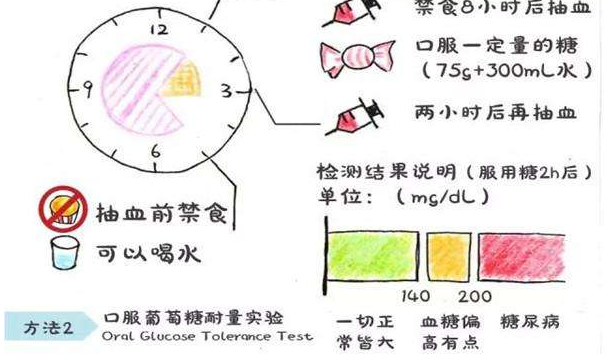 禁食8小时后抽血
12
口服一定量的糖
(75g+300mL水)
9
3
两小时后再抽血
6
检测结果说明(服用糖2h后)
单位:(mg/dL)
抽血前禁食
可以喝水
140 200
方法2
口服葡萄糖耐量实验
Oral Glucose Tolerance Test
一切正常皆大
血糖偏高有点
糖尿病